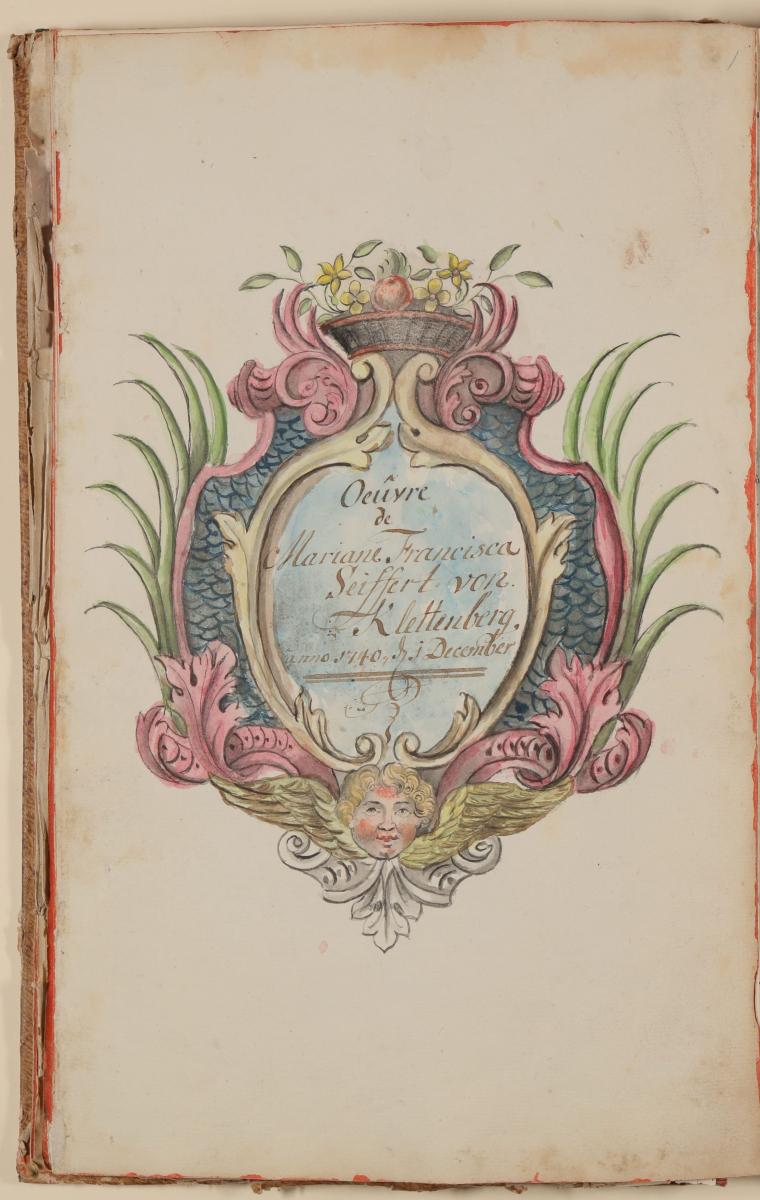 Oeûvre
de
Mariane Francisca
Seiffert von
Klettenberg.
anno 1740, 1 December